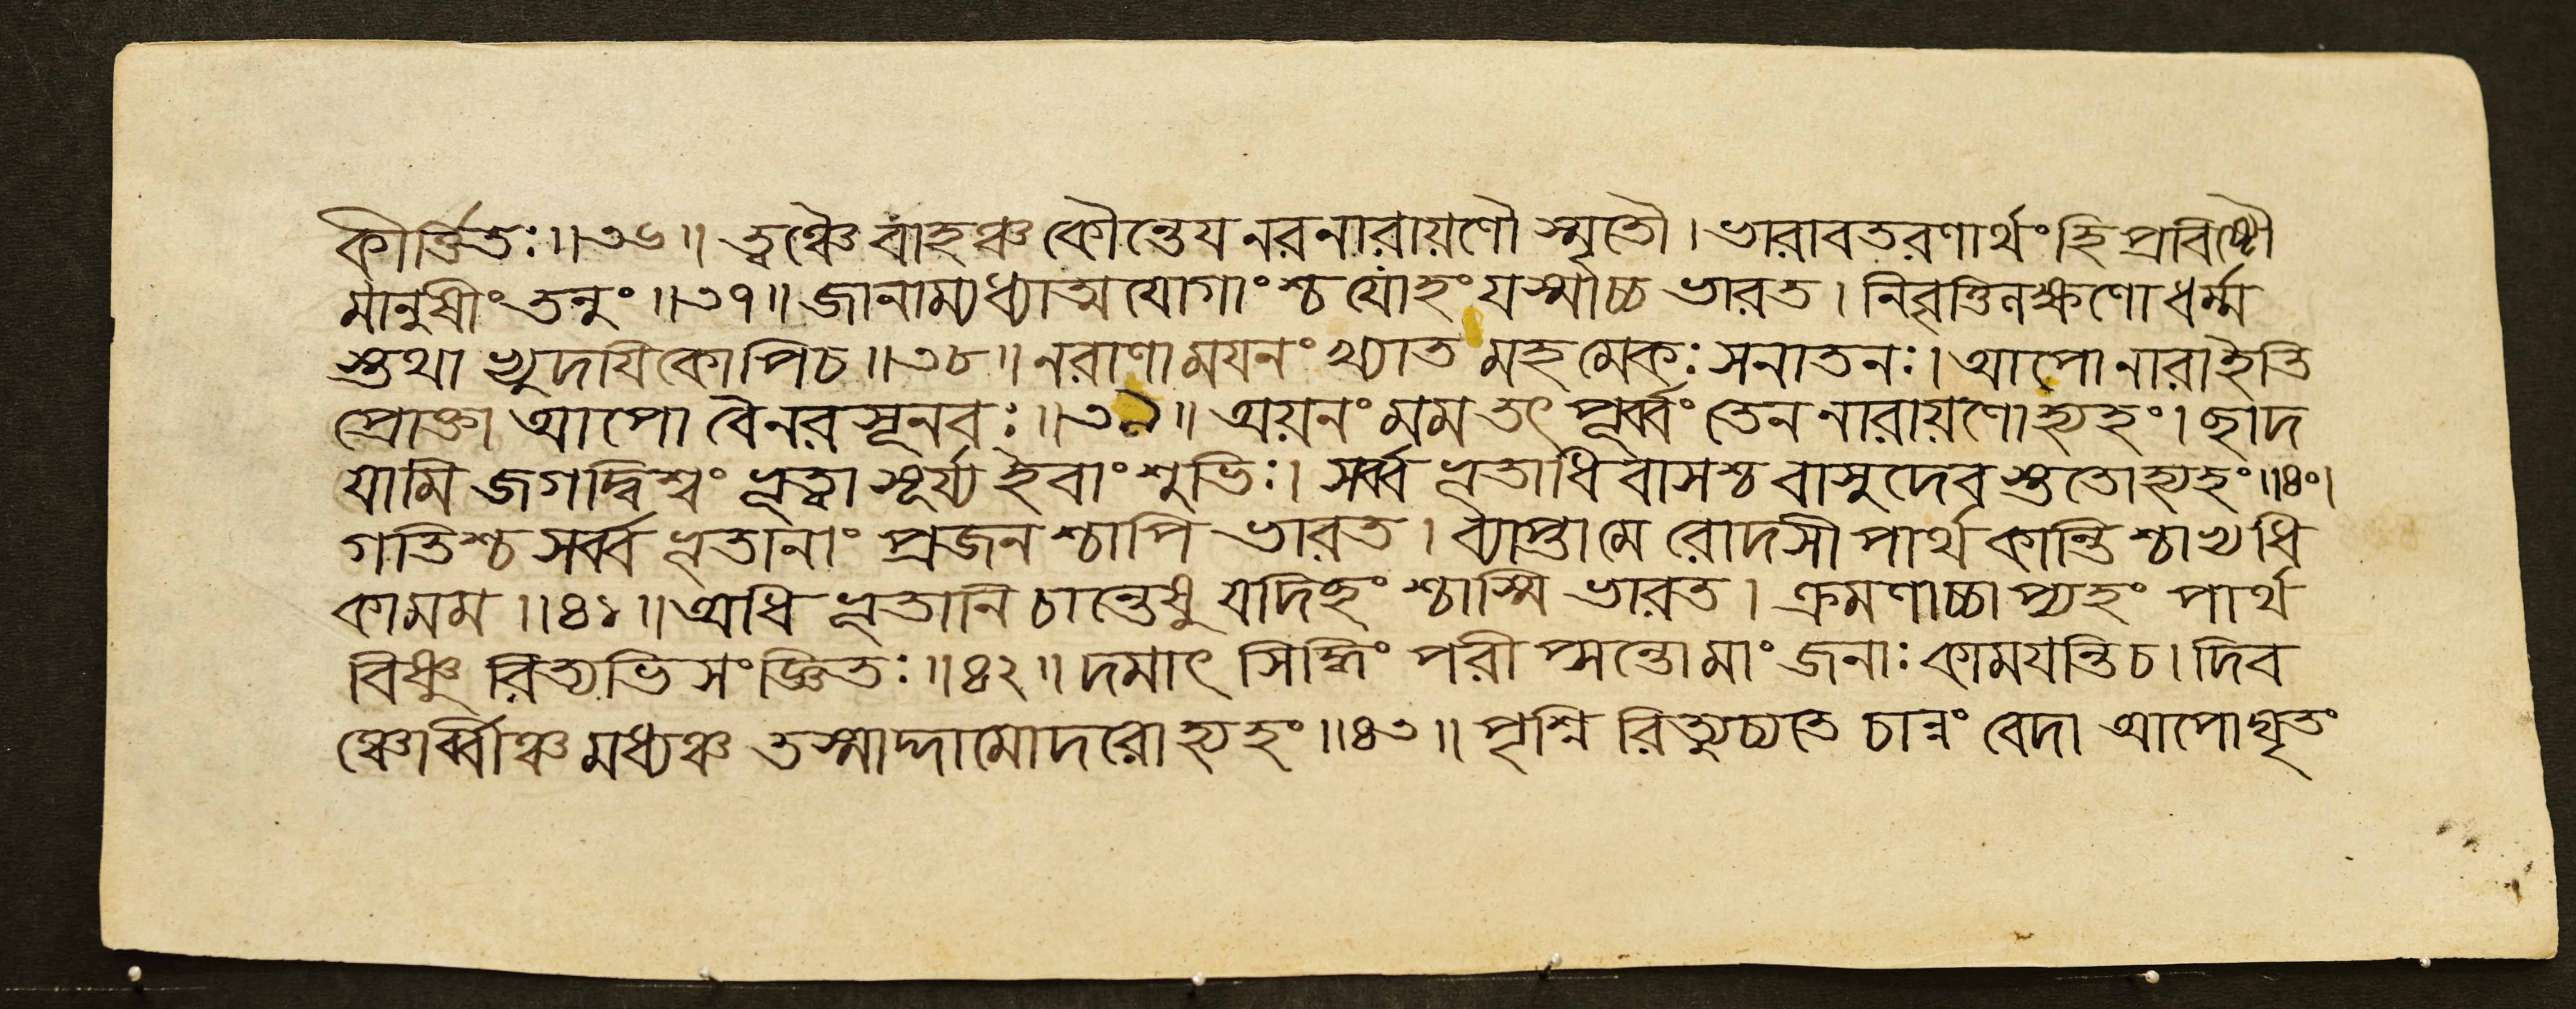 কীর্ত্তিতঃ ॥ ৩৬ ॥ ত্বঞ্চৈবাহঞ্চ কৌন্তেয নরনারায়ণৌ স্মৃতৌ । ভারাবতরণার্থং হি প্রবিষ্টৌ
মানুষীং তনুং ॥ ৩৭ ॥ জানাম্যধ্যাত্মযোগাংশ্চ যোহং যস্মাচ্চ ভারত । নিবৃত্তিলক্ষণো ধর্ম্ম
স্তথা ভ্যুদযিকোপি চ ॥ ৩৮ ॥ নরাণাময়নং খ্যাত মহমেকঃ সনাতনঃ । আপো নারা ইতি
প্রোক্তা আপো বৈ নরসূনবঃ ॥ ৩৯ ॥ অয়নং মম তৎ পূর্ব্বং তেন নারায়ণো হ্যহং । ছাদ
যামি জগদ্বিশ্বং ভূত্বা সূর্য্য ইবাংশুভিঃ । সর্ব্বভূতাধিবাসশ্চ বাসুদেবস্ততো হ্যহং ॥ ৪০ ।
গতিশ্চ সর্ব্বভূতানাং প্রজনশ্চাপি ভারত । ব্যাপ্তা মে রোদসী পার্থ কান্তিশ্চাভ্যধি
কা মম ॥ ৪১ ॥ অধিভূতানি চান্তেষু যদিহং শ্চাস্মি ভারত । ক্রমণাচ্চাপ্যহং পার্থ
বিষ্ণুরিত্যভিসংজ্ঞিতঃ ॥ ৪২ ॥ দমাৎ সিদ্ধিং পরীপ্সন্তো মাং জনাঃ কামযন্তি চ । দিব
ঞ্চোর্ব্বীঞ্চ মধ্যঞ্চ তস্মাদ্দামোদরো হ্যহং ॥ ৪৩ ॥ পৃশ্নিরিত্যুচ্যতে চান্নং বেদা আপো ঘৃতং